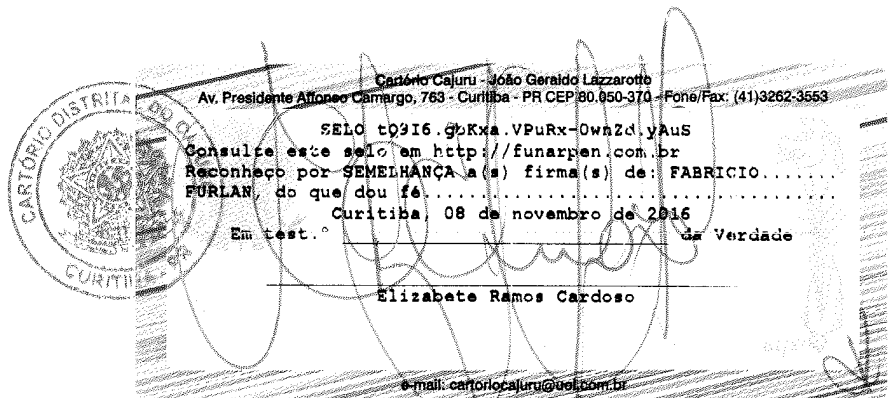 Cartório Cajuru - João Geraldo Lazzarotto
Av. Presidente Affonso Camargo, 763 - Curitiba - PR CEP 80.050-370 - Fone/Fax: (41)3262-3553
SELO tQ9I6.gbKxa.VPuRx-0wnZd.yAuS
Consulte este selo em http://funarpen.com.br
Reconheço por SEMELHANÇA a(s) firma(s) de: FABRICIO.......
FURLAN, do que dou fé.......................................
Curitiba, 08 de novembro de 2016
Em test.º ______________________ da Verdade
Elizabete Ramos Cardoso
e-mail: cartoriocajuru@uol.com.br
CARTÓRIO DISTRITAL DO
CURITIBA - PR